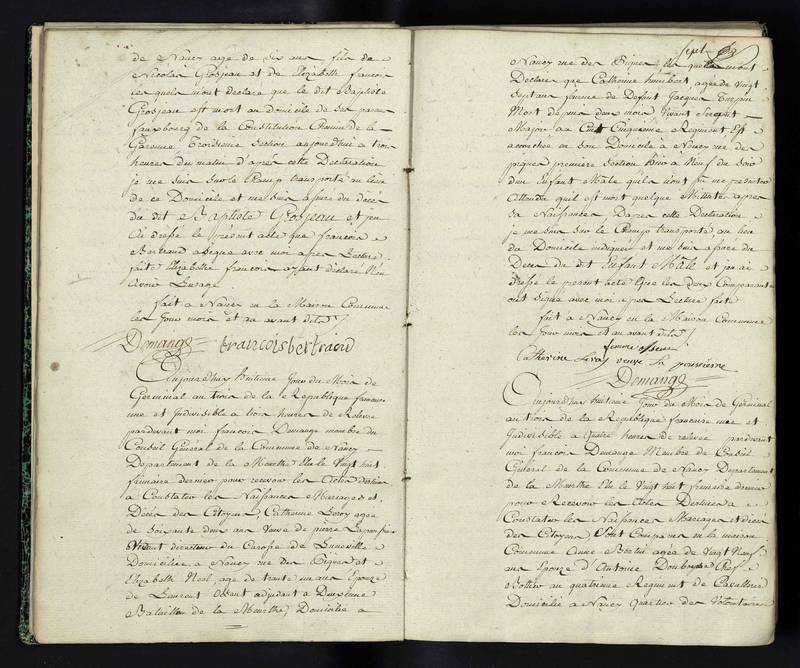 de Nancy agé de dix ans fils de
Nicolas Grosjean et de Elizabeth francois
les quels mont declare que le dit Baptiste
Grosjean est mort au domicile de ses pere
fauxbourg de la Constitution Chemin de la
Garenne Troisieme Section aujourdhui a trois
heures du matin d'apres cette Declaration
je me suis sur le Champ transporté au lieu
de ce Domicile et me suis assuré du décès
du dit Baptiste Grosjean et jen
ai dressé le présent acte que francois
Bertrand a Signé avec moi apres Lecture
faite Elizabeth francois ayant déclaré Ne
Savoir Lusage
fait a Nancy en la Maison Commune
les Jour mois et an avant dits
Demange francois bertrand
Aujourdhuy huitieme Jour du Mois de
Germinal an trois de la Republique francaise
une et Indivisible a trois heures de Relevé
pardevant moi francois Demange membre du
Conseil Général de la Commune de Nancy
Departement de la Meurthe Elu le Vingt huit
frimaire dernier pour recevoir les Actes destinés
a Constater les Naissances Mariages et
Décès des Citoyens Catherine Leroy agee
de Soixante deux ans Veuve de pierre
Vivant directeur du Carosse de Luneville
Domiciliée a Nancy rue des Piques et
Elizabeth Noel age de trente un ans Epouse
de Laurent Ossant adjudant a Deuxieme
Bataillon de la Meurthe Domiciliée a
sept
Nancy rue des Piques les quelles mont
Declaré que Catherine humbert agee de Vingt
Sept ans femme de Defunt Jacques Turpin
Mort depuis deux mois Vivant Sergent
Major au Cinquieme Regiment Est
accouchée en son Domicile a Nancy rue des
piques premiere Section hier a Neuf du Soir
dun Enfant Male qu'ils n'ont pu me presenter
Attendu quil est mort quelque Minutes apres
sa Naissance Dapres cette Declaration
je me suis Sur le Champ transporté au lieu
du Domicile indiqué et me suis assuré du
Deces du dit Enfant Mâle et jen ai
dressé le present Acte Que les deux Comparantes
ont Signé avec moi apres Lecture faite
fait a Nancy en la Maison Commune
les Jour mois et an avant dits
femme ossent
Catherine Leroy veuve La
Demange
Aujourdhuy huitieme Jour du Mois de Germinal
an trois de la Republique francaise une et
Indivisible a Quatre heures de relevée pardevant
moi francois Demange Membre du Conseil
Général de la Commune de Nancy Departement
de la Meurthe Elu le Vingt huit frimaire dernier
pour Recevoir les Actes Destinés a
Constater les Naissances Mariages et Deces
des Citoyens Sont Comparus en la maison
Commune Anne agee de Vingt Neuf
ans Epouse d'Antoine Chef
Bottier au quatrieme Regiment de Cavallerie
Domicilié a Nancy Quartier des Volontaires